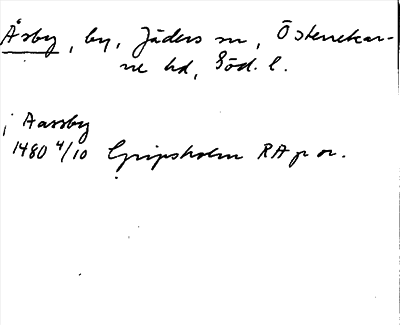 Åsby, by, Jäders sn, Österrekar-
ne hd, Söd. l.
i Aassby
1480 4/10 Gripsholm RA p or.